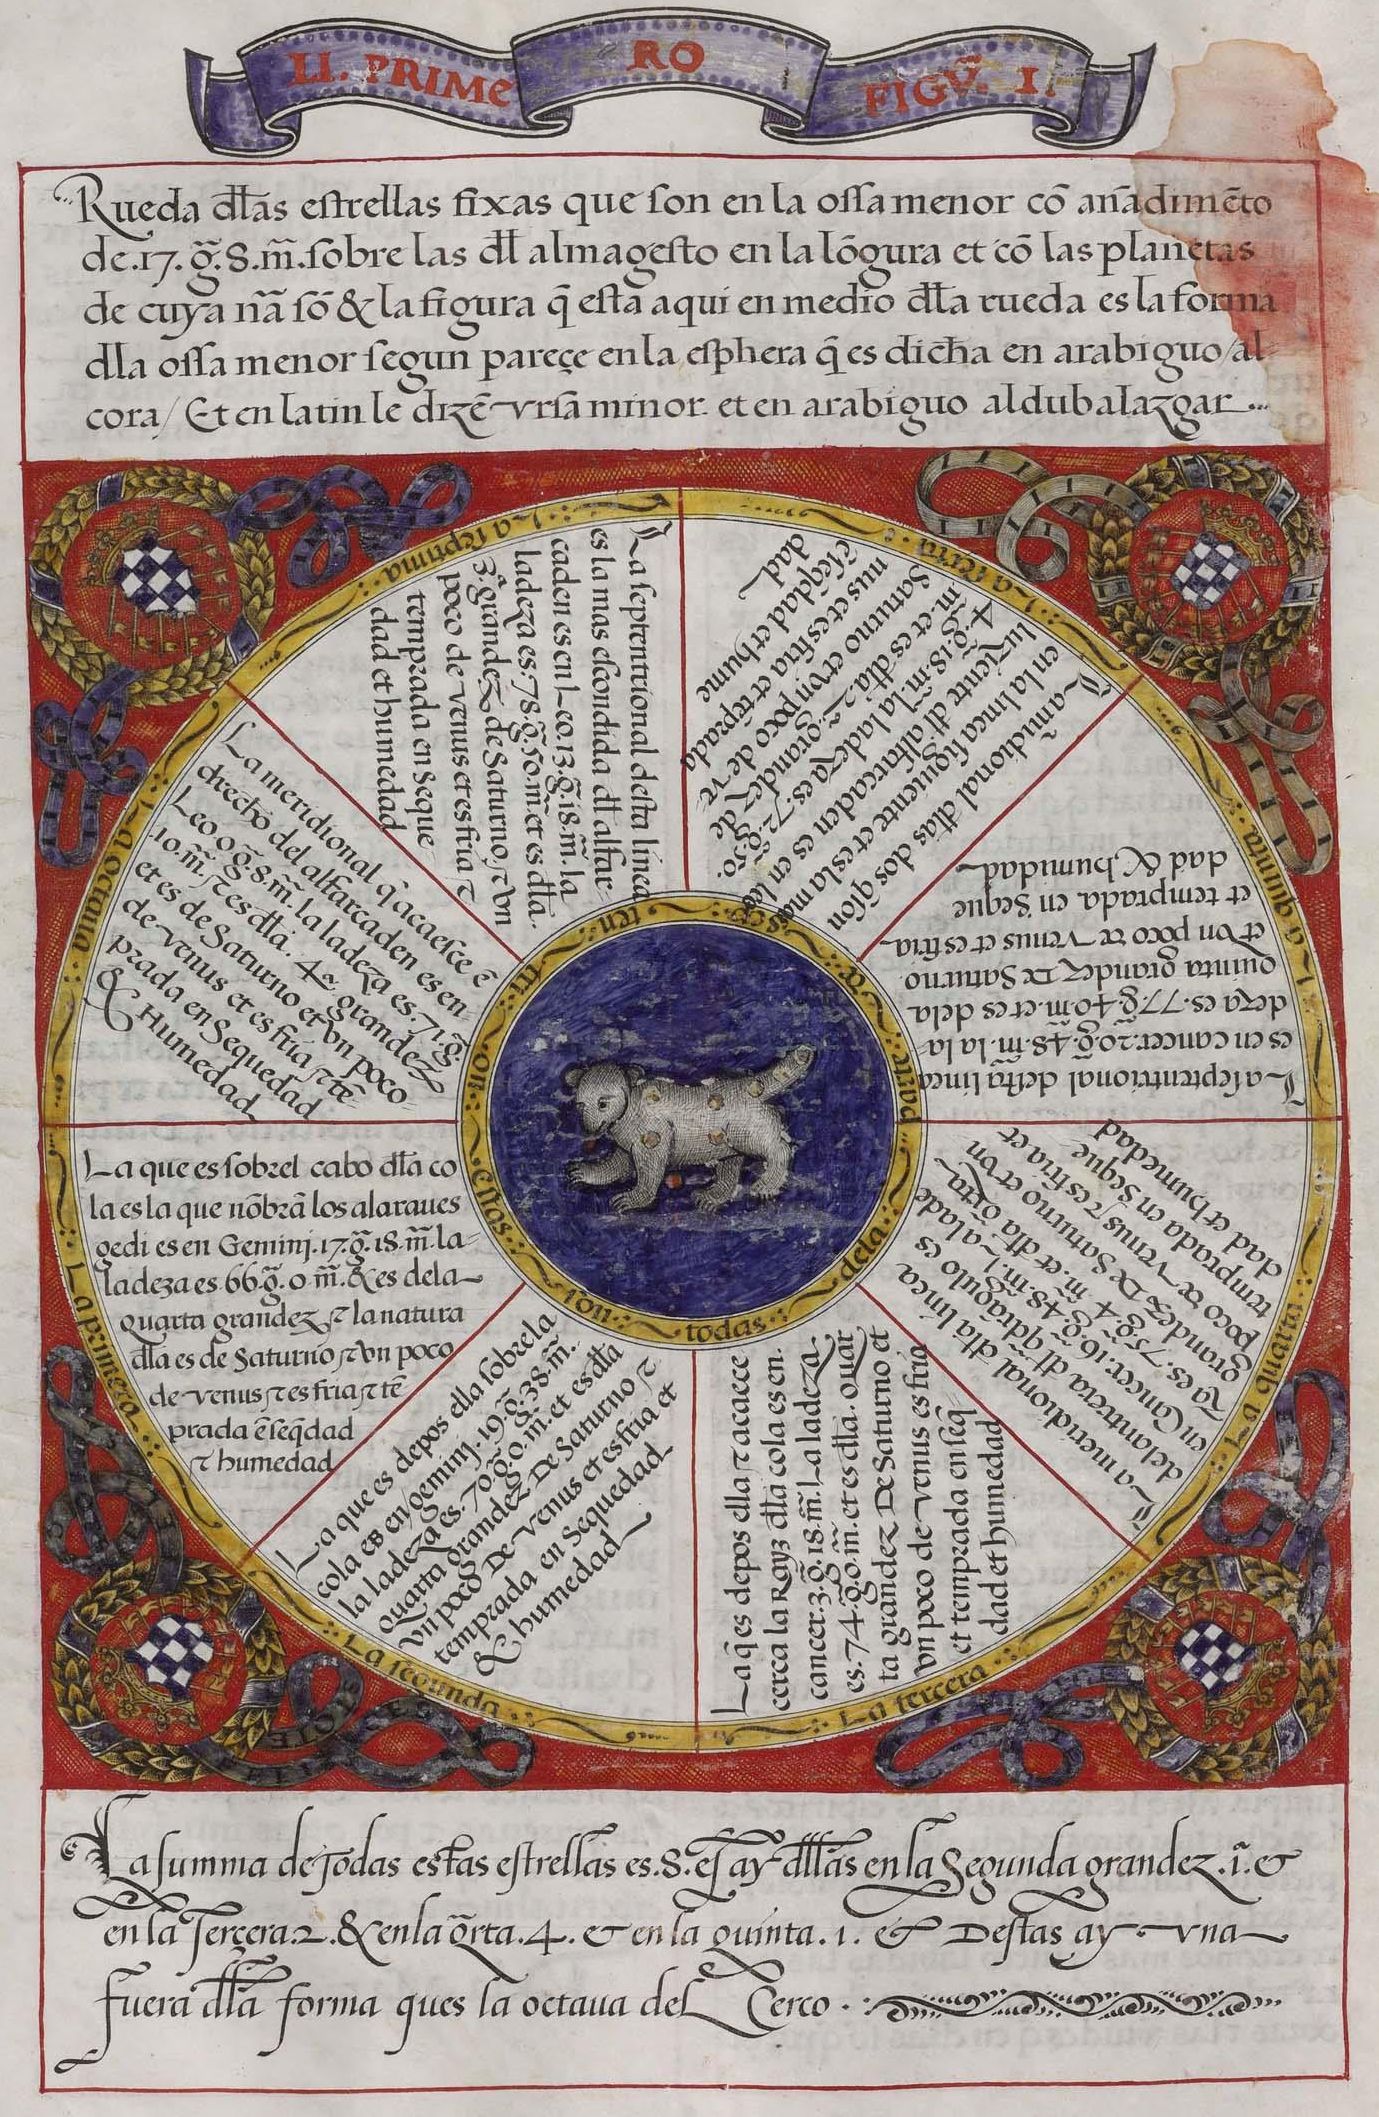 LI. PRIME
RO
FIGV̄. I.
Rueda dłłas estrellas fixas que son en la ossa menor cō anãdimẽto
de .17. g̃. 8. m̃. sobre las dłł almagesto en la lõgura et cõ las planetas
de cuya nãa sõ & la figura q̃ esta aqui en medio dłła rueda es la forma
dlla ossa menor segun pareçe en la esphera q̃ es dicha en arabiguo/al-
cora/ Et en latin le dizẽ vrsa minor et en arabiguo aldubalazgar...
La primera
La que es sobrel cabo dłła co
la es la que nõbrã los alaraues
gedi es en Geminj .17. g̃. 18. m̃. la-
ladeza es 66. g̃. 0 m̃. & es dela
quarta grandez ⁊ la natura
dłła es de Saturno ⁊ vn poco
de venus ⁊ es fria ⁊ tẽ
prada ẽ seq̃dad
⁊ humedad
La segunda
La que es depos ella sobre la
cola es en geminj. 19. g̃. 38. m̃.
la ladeza es. 70. g̃. 0. m̃. et es dłła
quarta grandez De Saturno ⁊
vn poco De venus et es fria et
temprada en Sequedad
& humedad
La tercera
La q̃ es depos ella ⁊ acaece
cerca la Rayz dłła cola es en.
cancer. 3. g̃. 18. m̃. La ladeza.
es. 74. g̃. 0. m̃. et es dłła. quar
ta grandez De Saturno et
vn poco de venus es fria
et temprada en seq̃
dad et humedad
La quarta
La meridional dłła linea
delantrera dł qdrãgulo es
en Cancer. 16. g̃. 48. m̃. La lade
za es. 75. g̃. 4 m̃. et dłła q̃rta
grandez De Saturno et vn
poco de venus ⁊ es fria et
temprada en Seque
dad et humedad
La quinta
La septentrional desta linea
es en cancer. 20. g̃. 48. m̃. la la-
deza es. 77. g̃. 40 m. et es dela
quinta grandez De Saturno
et vn poco de venus et es fria
et temprada en Seque
dad & humidad
La sexta
La mi̅dional dłłas dos q̃ son
en la linea siguiente et es la mas
luziente dłł alfarcaden es en leo
4. g̃. 18. m̃. la ladeza es. 72. g̃. 50.
m̃. et es dłła. 2ª. grandez de
Saturno et vn poco de ve
nus et es fria et tẽprada
ẽ seq̃dad et hume
dad
La septima
La septentrional desta linea
es la mas escondida dłł alfar-
caden es en Leo. 13. g̃. 18. m̃. la
ladeza es. 78. g̃. 50. m̃. et es dłła.
3ª. grandez de Saturno, ⁊ vn
poco de venus et es fria ⁊
temprada en Seque
dad et humedad
La octaua
La meridional q̃ acaesce ẽ
drecho del alfarcaden es en
Leo. 0. g̃. 8. m̃. la ladeza es. 71. g̃.
.10. m̃. ⁊ es dłła. 4ª. grandez
et es de Saturno et vn poco
de venus et es fria ⁊ tẽ-
prada en Sequedad
& Humedad
todas
dela
parte
ten
tri
on
estas
son
La summa de Todas estas estrellas es. 8. es ay dłłas en la Segunda grandez. 1. et
en la Terçera. 2. & en la q̃rta. 4. et en la quinta. 1. et Destas ay vna
fuera dłła forma ques la octaua del Cerco